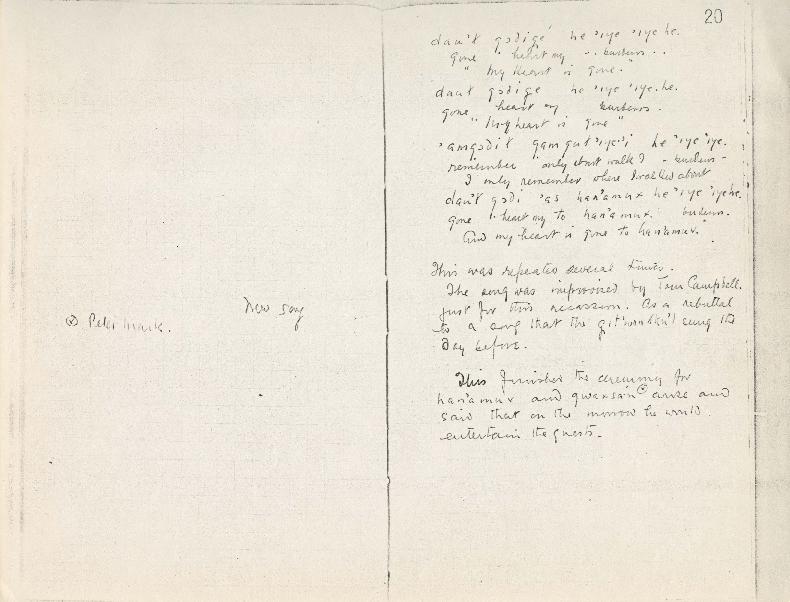 New song
⊗ Peter Mark.
20
dau't gǝdigē he 'iye 'iye he.
gone heart my -- burden --
"My heart is gone."
daut gǝdigē he 'iye 'iye he.
gone heart my burden.
"My heart is gone"
he 'iye 'iye.
remember only about walk I - burden -
I only remember where I walked about
dau't gǝdi 'as han'amux he 'iye 'iye he.
gone heart my to han'amux. burden.
And my heart is gone to han'amux."
This was repeated several times.
The song was improvised by Tom Campbell.
just for this occassion. As a rebuttal
to a song that the sung the
day before.
This finished the ceremony for
han'amux and arose and
said that on the morrow he would
entertain the guests.